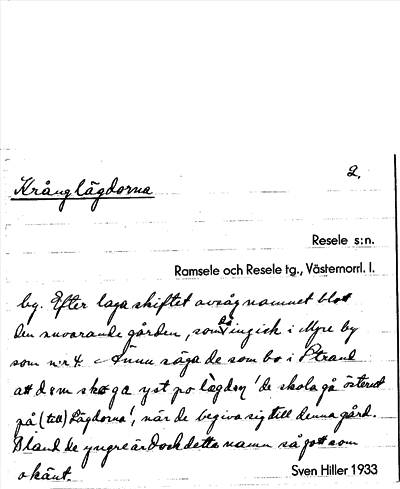 2.
Krånglägdorna
Resele s:n.
Ramsele och Resele tg., Västernorrl. l.
by. Efter laga skiftet avsåg namnet blott
den nuvarande gården, som då ingick i Myre by
som nr 4. Ännu säga de som bo i Strand
att dem ska ga yst po lägden 'de skola gå österut
på (till) Lägdorna', när de begiva sig till denna gård.
Bland de yngre är dock detta namn så gott som
okänt.
Sven Hiller 1933